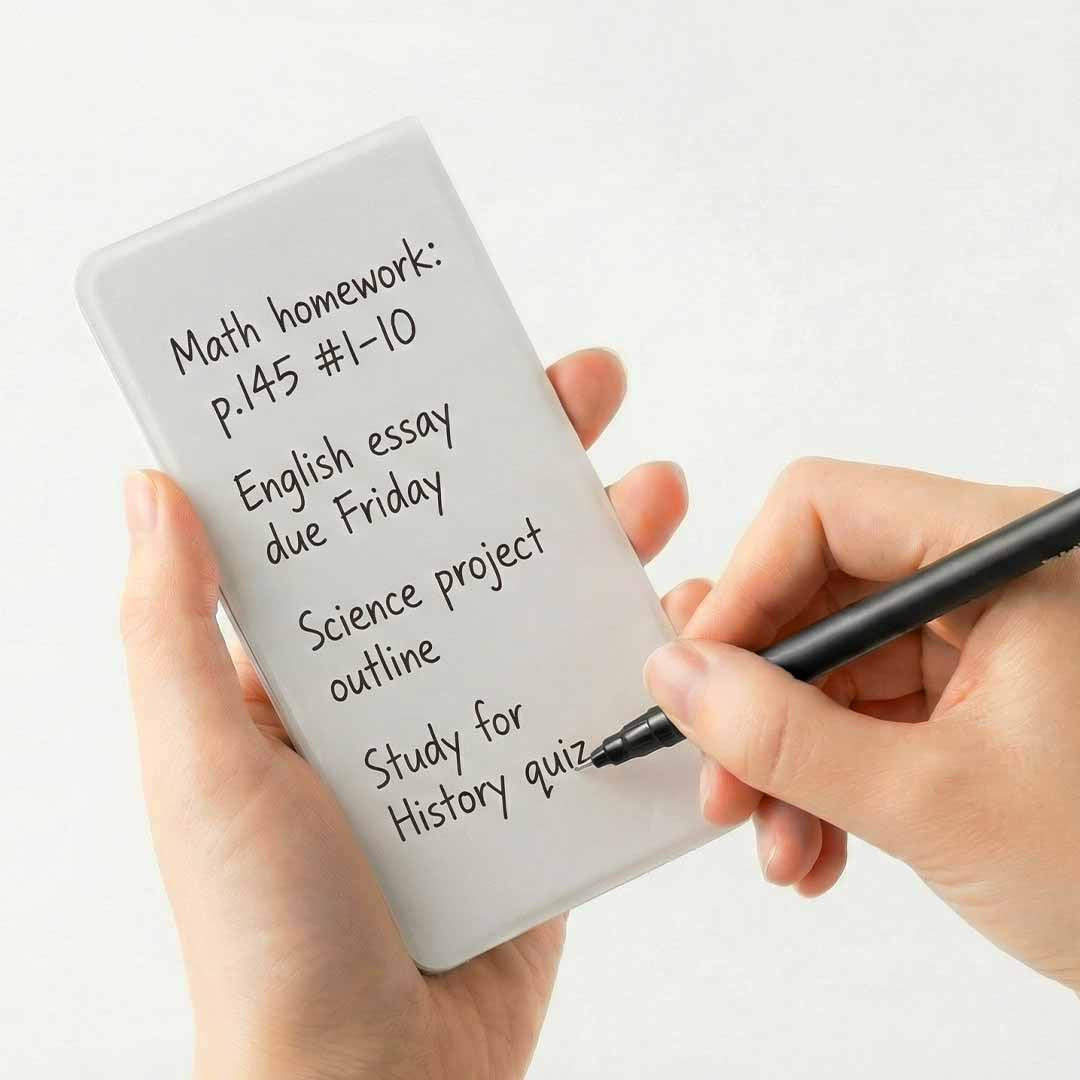 Math homework:
p.145 #1-10
English essay
due Friday
Science project
outline
Study for
History quiz